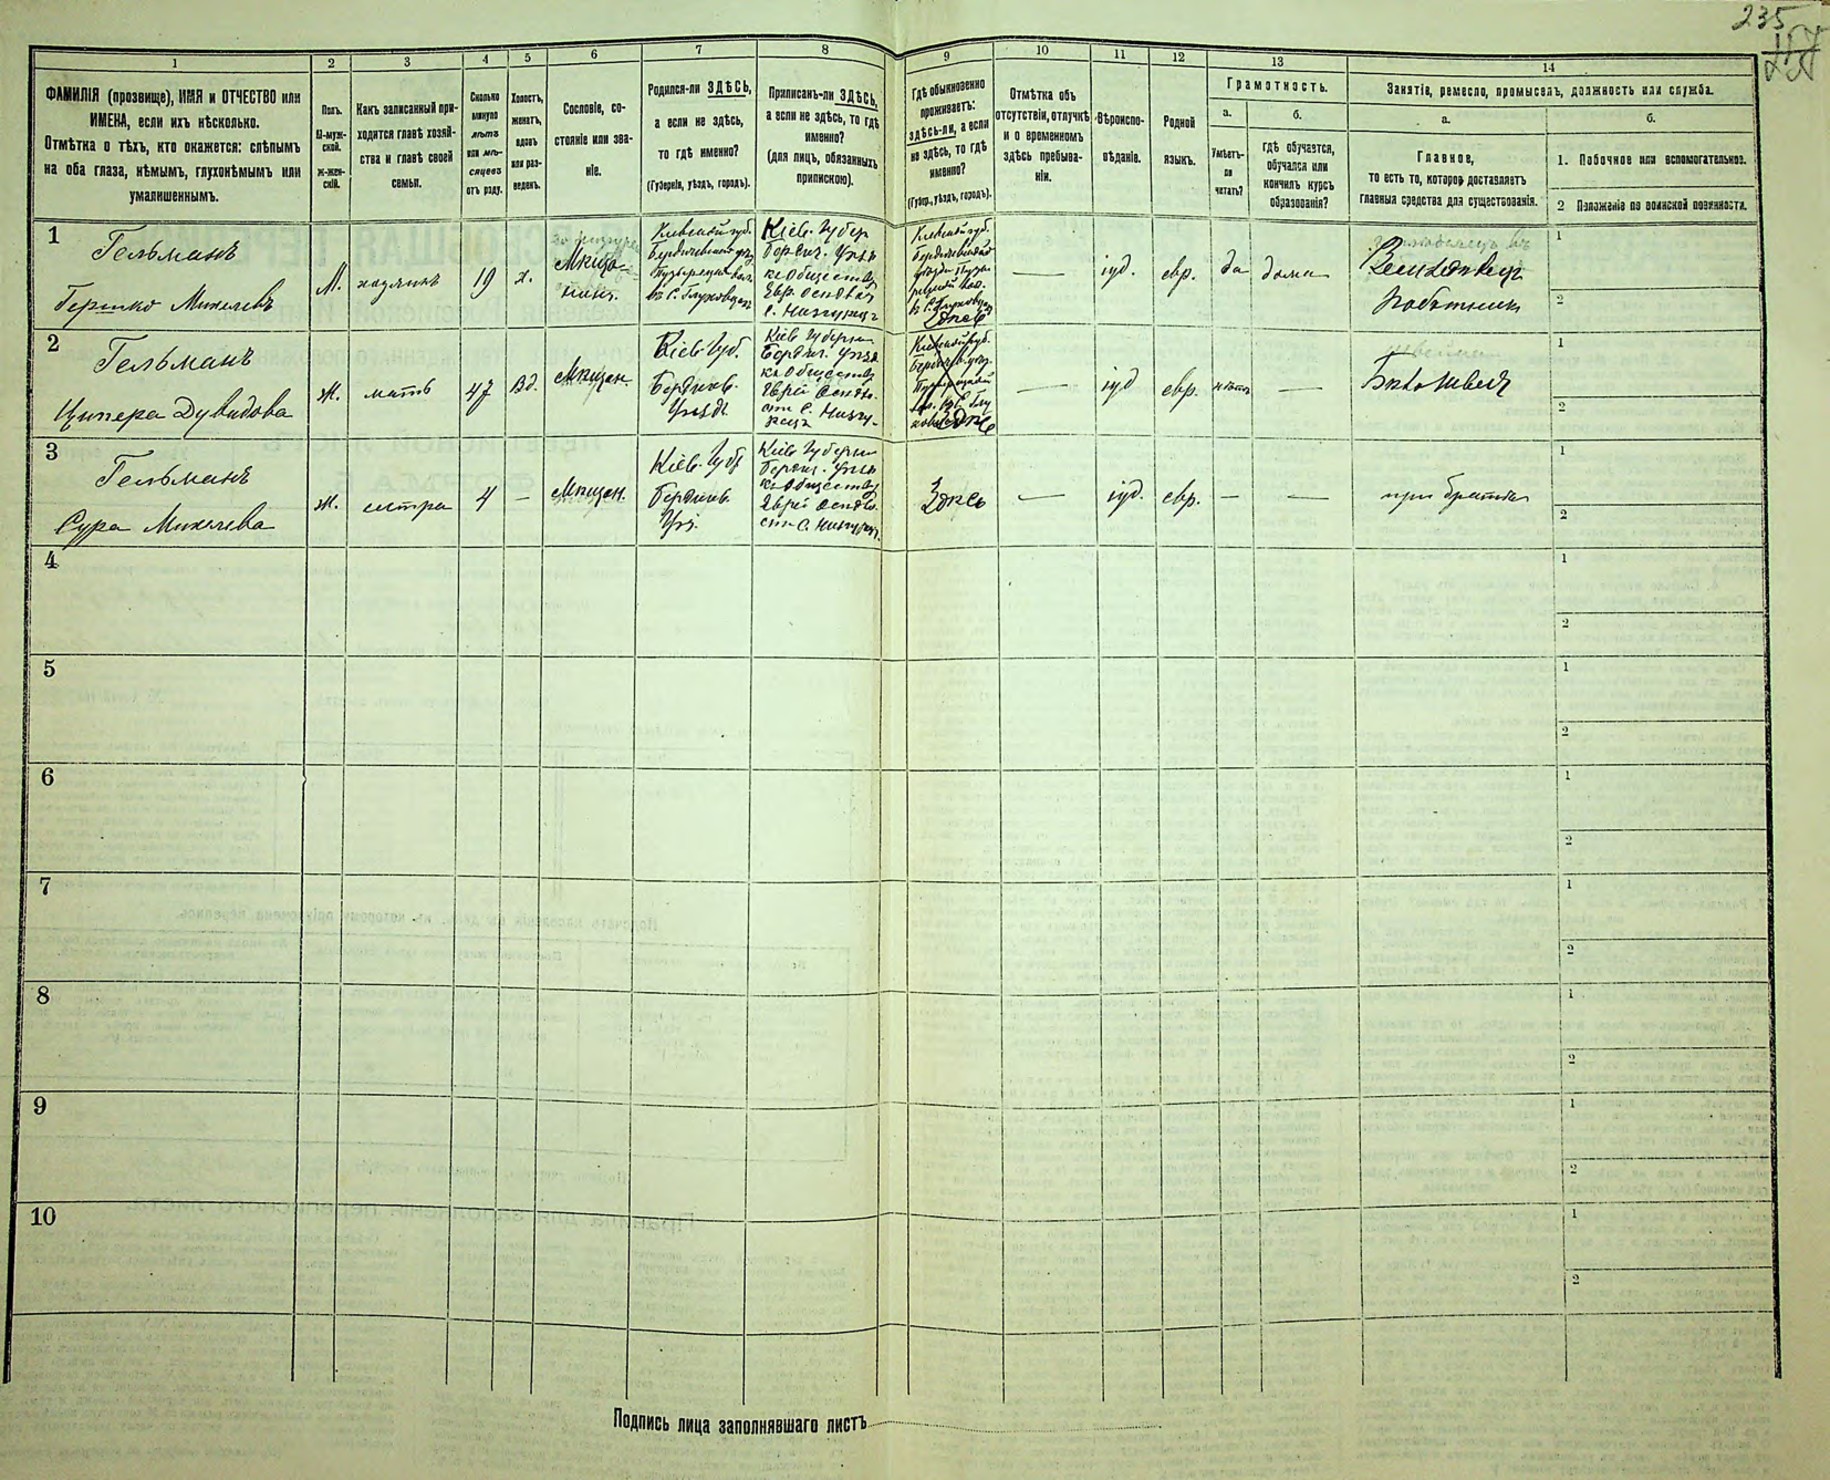 235
1
2
3
4
5
6
7
8
9
10
11
12
13
14
ФАМИЛІЯ (прозвище), ИМЯ и ОТЧЕСТВО или
ИМЕНА, если ихъ нѣсколько.
Отмѣтка о тѣхъ, кто окажется: слѣпымъ
на оба глаза, нѣмымъ, глухонѣмымъ или
умалишеннымъ.
Полъ.
М-муж-
ской.
ж-жен-
скій.
Какъ записанный при-
ходится главѣ хозяй-
ства и главѣ своей
семьи.
Сколько
минуло
лѣтъ
или мѣ-
сяцевъ
отъ роду.
Холостъ,
женатъ,
вдовъ
или раз-
веденъ.
Сословіе, со-
стояніе или зва-
ніе.
Родился-ли ЗДѢСЬ,
а если не здѣсь,
то гдѣ именно?
(Губернія, уѣздъ, городъ).
Приписанъ-ли ЗДѢСЬ,
а если не здѣсь, то гдѣ
именно?
(для лицъ, обязанныхъ
припискою).
Гдѣ обыкновенно
проживаетъ:
здѣсь-ли, а если
не здѣсь, то гдѣ
именно?
(Губер., уѣздъ, городъ).
Отмѣтка объ
отсутствіи, отлучкѣ
и о временномъ
здѣсь пребыва-
ніи.
Вѣроиспо-
вѣданіе.
Родной
языкъ.
Грамотность.
а.
Умѣетъ-
ли
читать?
б.
гдѣ обучается,
обучался или
кончилъ курсъ
образованія?
Занятіе, ремесло, промыселъ, должность или служба.
а.
Главное,
то есть то, которое доставляетъ
главныя средства для существованія.
б.
1. Побочное или вспомогательное.
2 Положеніе по воинской повинности.
1
Гельманъ
Гершко Михелевъ
М.
хозяинъ
19
х.
Мѣща-
нинъ.
Кіевской губ.
Бердичевскаго уѣз
въ С. Глуховцах
Кіев. Губер
Бердич. Уѣзд
къ обществу
Евр. осѣдл
Кіевской губ.
Здѣсь
—
іуд.
евр.
да
дома
Работникъ
1
2
2
Гельманъ
Ципера Дувидова
Ж.
мать
47
Вд.
Мѣщан.
Кіев. Губ.
Бердичев.
Уѣзд.
Кіев. Губерн
Бердич. Уѣзд
къ обществу
Кіевской губ.
Здѣсь
—
іуд
евр.
нѣтъ
—
Бѣлошвея
1
2
3
Гельманъ
Сура Михелева
Ж.
сестра
4
—
Мѣщан.
Кіев. Губ
Бердичев.
Уѣз.
Кіев. Губерн
Бердич. Уѣзд
къ обществу
Здѣсь
—
іуд.
евр.
—
—
при братѣ
1
2
4
1
2
5
1
2
6
1
2
7
1
2
8
1
2
9
1
2
10
1
2
Подпись лица заполнявшаго листъ